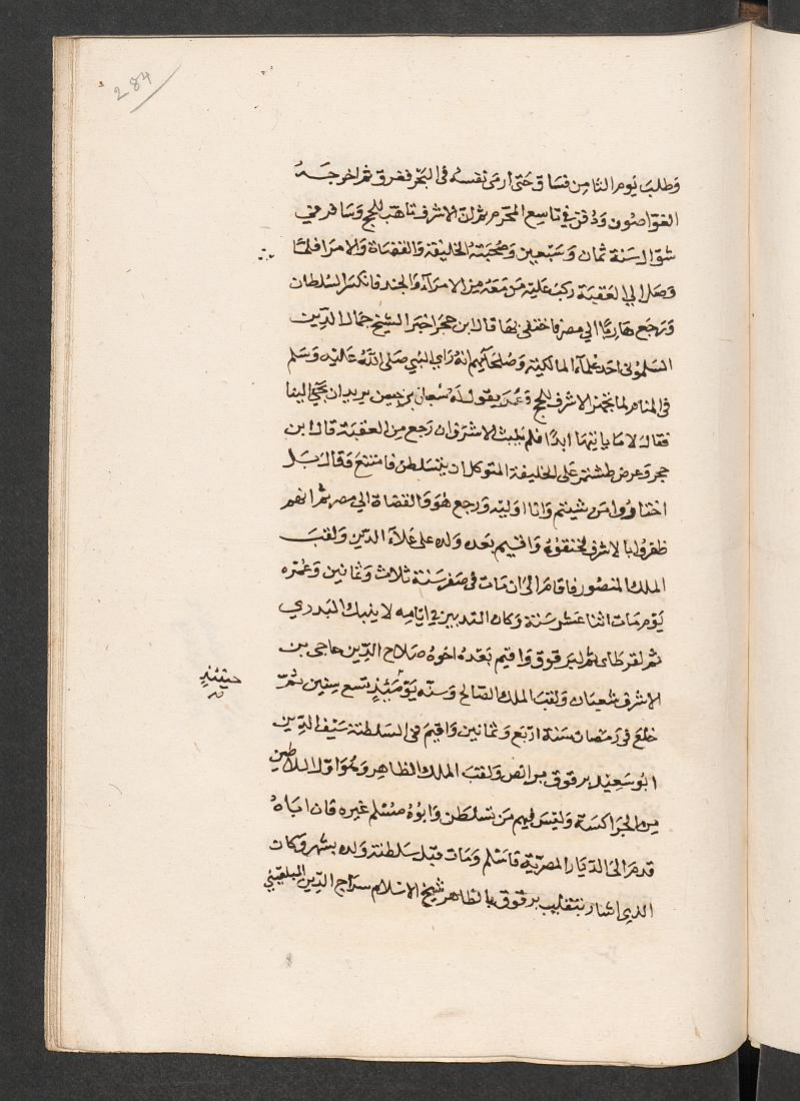 284
وطلب يوم الثامن فساق حتى ارمى نفسه في البحر فغرق ثم اخرجه
الغواصون ودفن في تاسع المحرم ثم ان الاشرف تاهب للحج وسافر في
شوال سنة ثمان وسبعين وصحبته الخليفة والقضاة والامرا فلما
وصل الي العقبة ركب عليه من معه من الامرآء والجند فانكسر السلطان
ورجع هاربا الي مصر فاختفى بها قال ابن حجر اخبر الشيخ جمال الدين
السلموني احد علمآء المالكية وصلحآيهم انه راي النبي صلى الله عليه وسلم
في المنام لما تجهز الاشرف للحج وعمر يقول له شعبان بن حسين يريد ان يجي الينا
فقال لا ما ياتينا ابدا فلم يلبث الاشرف ان رجع من العقبة قال ابن
حجر وعرض طشتمر على الخليفة المتوكل ان يتسلطن فامتنع وقال بل
اختاروا من شيتم وانا اوليه ورجع هو والقضاة الي مصر ثم انهم
ظفروا بالاشرف فخنقوه واقيم بعده ولده علي علآء الدين ولقب
الملك المنصور فاقام الى ان مات في صفر سنة ثلاث وثمانين وعمره
يوم مات اثنا عشر سنة وكان التدبير في ايامه لاينبك البدري
ثم لقرطاي ثم لبرقوق واقيم بعده اخوه صلاح الدين حاجي بن
الاشرف شعبان ولقب الملك الصالح وسنه يوميذ تسع سنين ثم
حينئذ
خلع في رمضان سنة اربع وثمانين واقيم في السلطنة سيف الدين
ابو سعيد برقوق بن انص ولقب الملك الظاهر وهو اول السلاطين
من الجراكسة وليس فيهم من تسلطن وابوه مسلم غيره فان اباه
قدم الى الديار المصرية فاسلم ومات قبل سلطنة ولده بشهر وكان
الذي اشار بتقليب برقوق بالظاهر شيخ الاسلام سراج الدين البلقيني